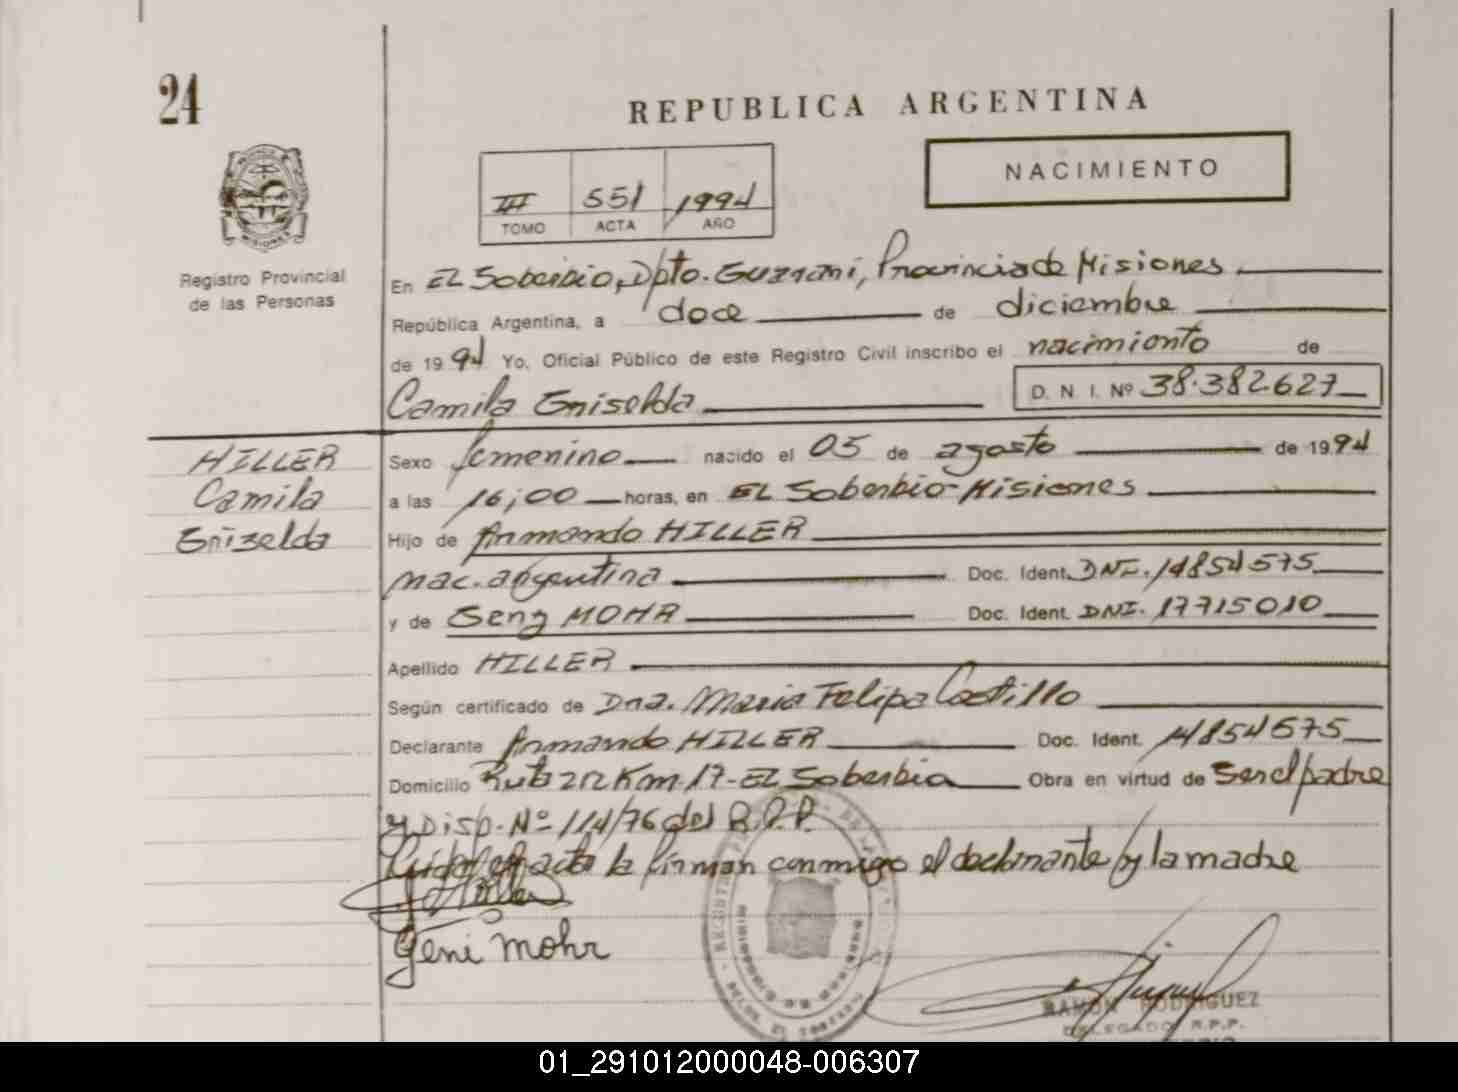 24
REPUBLICA ARGENTINA
NACIMIENTO
III 551 1994
TOMO ACTA AÑO
Registro Provincial
de las Personas
En EL Soberbio, Dpto. Guaraní, Provincia de Misiones
República Argentina, a doce de diciembre
de 1994 Yo, Oficial Público de este Registro Civil inscribo el nacimiento de
Camila Griselda D. N. I. Nº 38.382.627
HILLER
Camila
Griselda
Sexo femenino nacido el 05 de agosto de 1994
a las 16;00 horas, en EL Soberbio-Misiones
Hijo de Armando HILLER
nac. argentina Doc. Ident. DNI. 14854575
y de Geng MOHR Doc. Ident. DNI. 17715010
Apellido HILLER
Según certificado de Dna. Maria Felipa Castillo
Declarante Armando HILLER Doc. Ident. 14854575
Domicilio Ruta 212 Km. 17-EL Soberbia Obra en virtud de Ser el padre
y Disp. Nº 114/76 del R.P.P.
Leida el acta la firman conmigo el declarante y la madre
Geni Mohr
RAMON RODRIGUEZ
DELEGADO R.P.P.
01_291012000048-006307